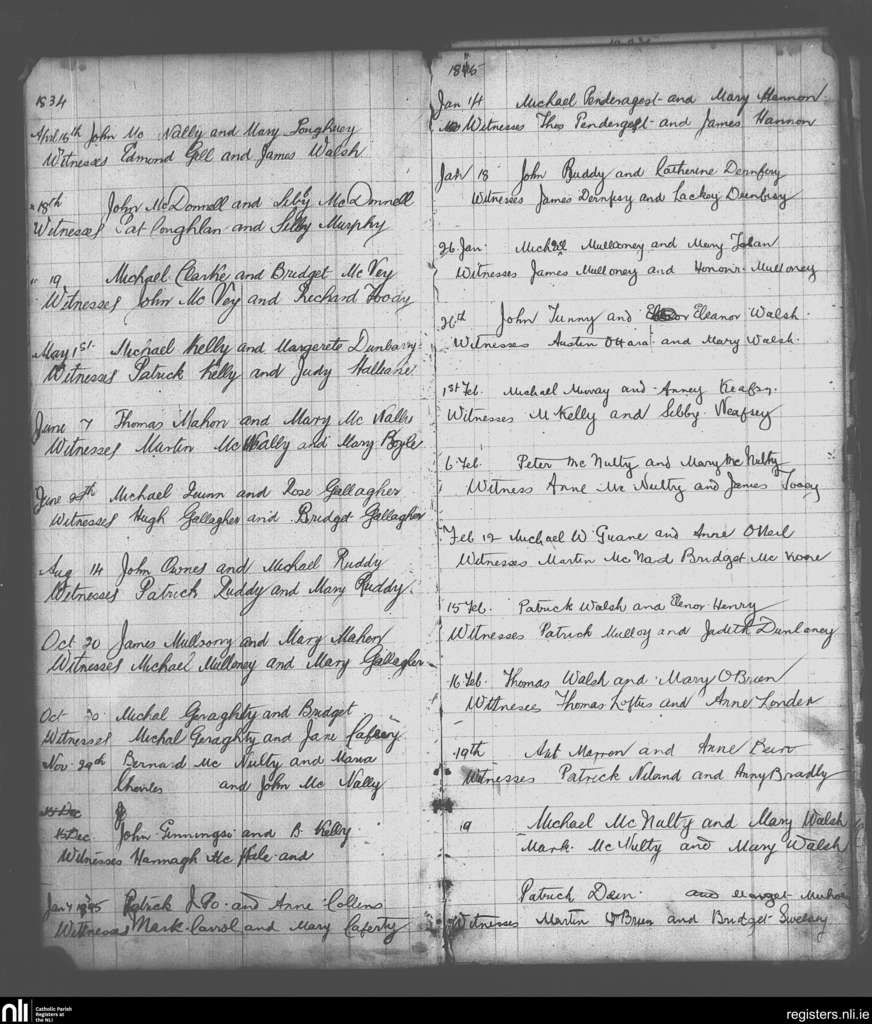 1834
April 15th John Mc Nally and Mary
Witnesses Edmond Gill and James Walsh
" 18th John McDonnell and Siby McDonnell
Witnesses Pat Coughlan and Sibby Murphy
" 19 Michael Clarke and Bridget McVey
Witnesses John McVey and Richard Toody
May 1st. Michael Kelly and Margerete Dunbarry
Witnesses Patrick Kelly and Judy
June 7 Thomas Mahon and Mary Mc Nally
Witnesses Martin McNally and Mary Boyle
June Michael Quinn and Rose Gallagher
Witnesses Hugh Gallagher and Bridget Gallagher
Aug 14 John Ownes and Michael Ruddy
Witnesses Patrick Ruddy and Mary Ruddy.
Oct 20 James and Mary Mahon
Witnesses Michael Mulloney and Mary Gallagher
Oct 20 Michal Geraghty and Bridget
Witnesses Michal Geraghty and Jane Cafrey
Nov. 29th Bernard Mc Nulty and Maria
Charles and John Mc Nally
15 Dec
15 Dec. John Ginnings and B. Kelly
Witnesses Hannagh Mc Hale and
Jany Patrick and Anne Collins
Witnesses Mark Carrol and Mary Caferty
1845
Jan 14 Michael Penderagest and Mary Hannon
Witnesses Thos Pendergest and James Hannon
Jan 18 John Ruddy and Catherine Dempsey
Witnesses James Dempsy and Lackey
26 Jan. Michael Mullooney and Mary
Witnesses James Mulloney and Honour Mulloney
26th John Tunny and Eleanor Walsh.
Witnesses Austin OHara and Mary Walsh.
1st Feb. Michael Murray and Anney
Witnesses M Kelly and Sibby Neafsey
6 Feb Peter McNulty and Mary McNulty
Witness Anne Mc Nulty and James
Feb 12 Michael W. Guane and Anne ONeil
Witnesses Martin McNard Bridget Mc
15 Feb. Patrick Walsh and Elenor Henry
Witnesses Patrick Mulloy and Judith Dunlaney
16 Feb. Thomas Walsh and Mary OBrien
Witnesses Thomas Loftus and Anne Londen
19th Ant Marron and Anne
Witnesses Patrick Niland and Anny Bradly
19 Michael McNulty and Mary Walsh
Mark McNulty and Mary Walsh
Patrick Dain. and
Witnesses Martin OBrien and Bridget Sweeny
nli
Catholic Parish
Registers at
the NLI
registers.nli.ie